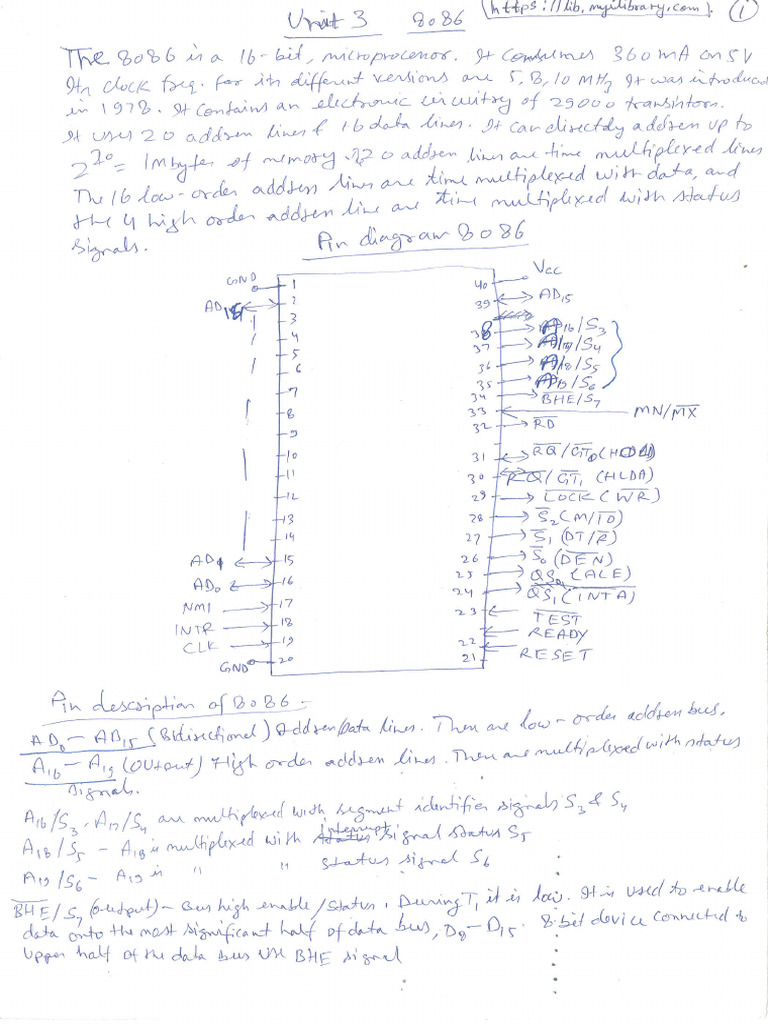 Unit 3 8086 (https://lib.myilibrary.com). 1
The 8086 is a 16-bit, microprocessor. It consumes 360mA on 5V
Its clock freq. for its different versions are 5, 8, 10 MHz It was introduced
in 1978. It contains an electronic circuitry of 29000 transistors.
It uses 20 address lines & 16 data lines. It can directly address up to
2^20 = 1mbytes of memory. 20 address lines are time multiplexed lines
The 16 low-order address lines are time multiplexed with data, and
the 4 high order address line are time multiplexed with status
signals.
Pin diagram 8086
GND 1 40 Vcc
AD14 2 39 AD15
3 38 A16/S3
4 37 A17/S4
5 36 A18/S5
6 35 A19/S6
7 34 B̅H̅E̅/S7
8 33 MN/M̅X̅
9 32 R̅D̅
10 31 R̅Q̅/G̅T̅0 (HOLD)
11 30 R̅Q̅/G̅T̅1 (HLDA)
12 29 L̅O̅C̅K̅ (W̅R̅)
13 28 S̅2 (M/I̅O̅)
14 27 S̅1 (DT/R̅)
AD1 15 26 S̅0 (D̅E̅N̅)
AD0 16 25 QS0 (ALE)
NMI 17 24 QS1 (I̅N̅T̅A̅)
INTR 18 23 T̅E̅S̅T̅
CLK 19 22 READY
GND 20 21 RESET
Pin description of 8086 -
AD0 - AD15 (Bidirectional) Address/Data lines. These are low-order address bus.
A16 - A19 (Output) High order address lines. These are multiplexed with status
signals.
A16/S3, A17/S4 are multiplexed with segment identifier signals S3 & S4
A18/S5 - A18 is multiplexed with interrupt signal status S5
A19/S6 - A19 is " " status signal S6
B̅H̅E̅/S7 (output) - Bus high enable/Status. During T1 it is low. It is used to enable
data onto the most significant half of data bus, D8-D15. 8-bit device connected to
upper half of the data bus use BHE signal